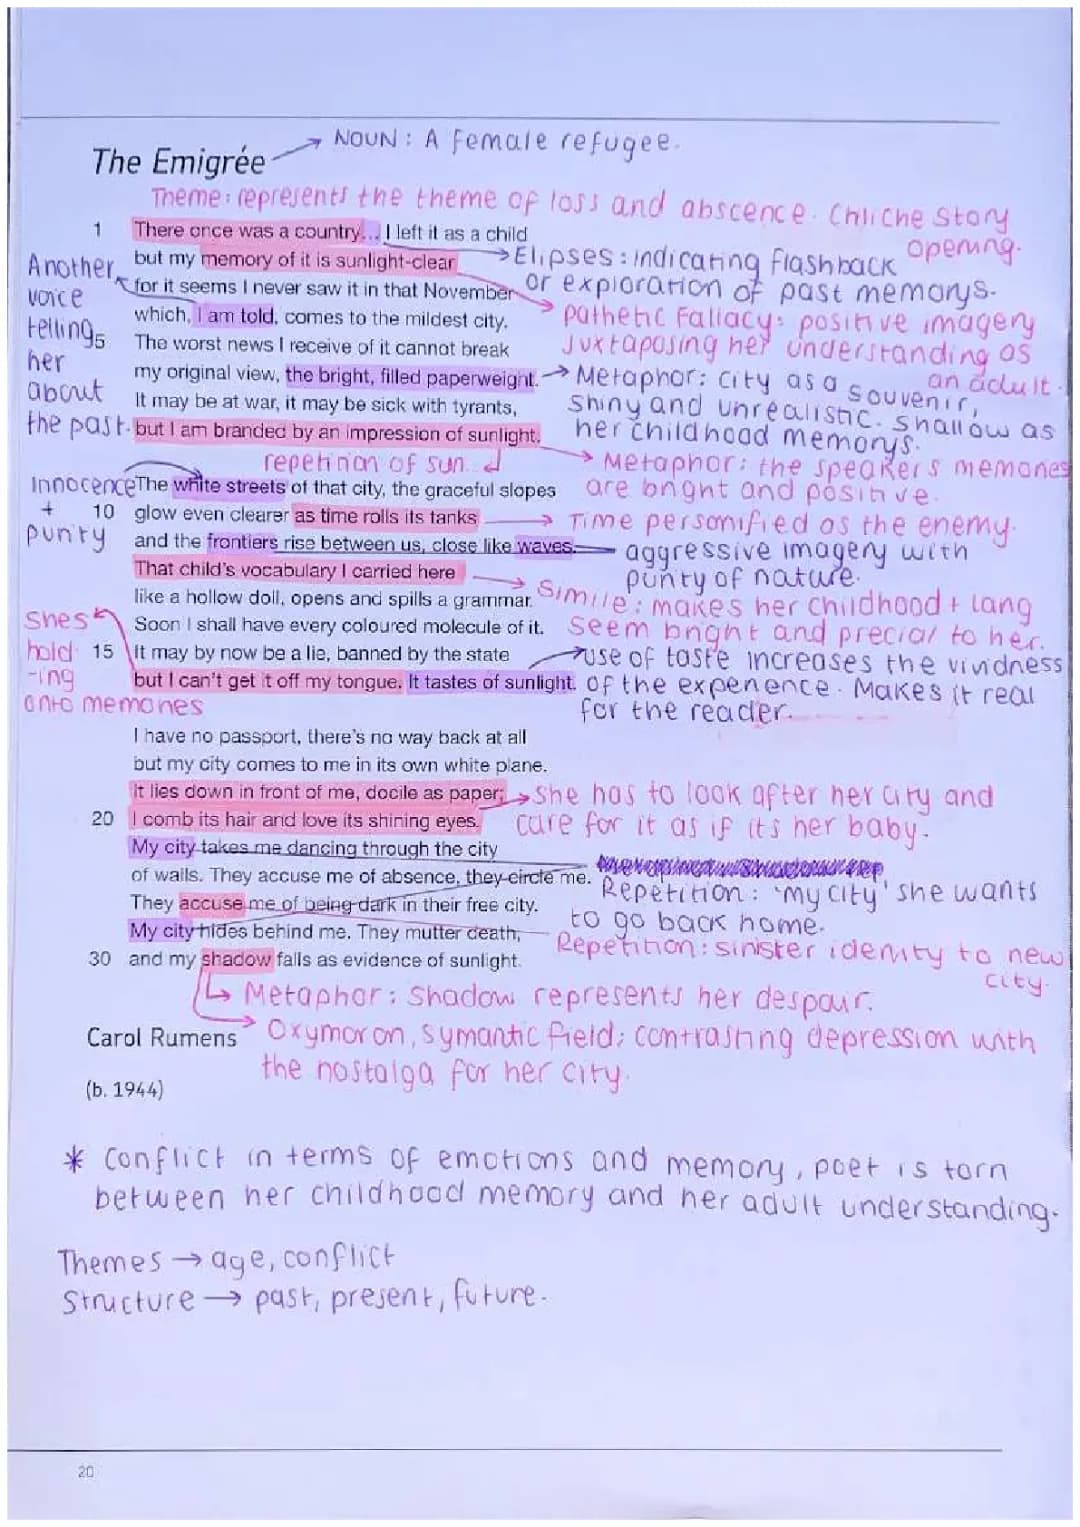 The Emigrée → NOUN: A female refugee.
Theme: represents the theme of loss and abscence. Chliche Story
opening.
1 There once was a country... I left it as a child
but my memory of it is sunlight-clear
→ Elipses: indicating flashback
or exploration of past memorys.
Another
voice
telling
her
about
the past.
for it seems I never saw it in that November
which, I am told, comes to the mildest city.
5 The worst news I receive of it cannot break
my original view, the bright, filled paperweight.
It may be at war, it may be sick with tyrants,
but I am branded by an impression of sunlight.
Pathetic Fallacy: positive imagery
Juxtaposing her understanding as
an adult.
→ Metaphor: City as a souvenir,
shiny and unrealistic. Shallow as
her childhood memorys.
repetition of sun.
→ Metaphor: the speakers memories
are bright and positive.
Innocence
+
purity
The white streets of that city, the graceful slopes
10 glow even clearer as time rolls its tanks
and the frontiers rise between us, close like waves.
That child's vocabulary I carried here
like a hollow doll, opens and spills a grammar.
Soon I shall have every coloured molecule of it.
15 It may by now be a lie, banned by the state
but I can't get it off my tongue. It tastes of sunlight.
→ Time personified as the enemy.
aggressive imagery with
purity of nature.
Simile: makes her childhood + lang
seem bright and precial to her.
use of taste increases the vividness
of the experience. Makes it real
for the reader.
Shes
hold
-ing
onto memories
I have no passport, there's no way back at all
but my city comes to me in its own white plane.
It lies down in front of me, docile as paper;
20 I comb its hair and love its shining eyes.
My city takes me dancing through the city
of walls. They accuse me of absence, they circle me.
They accuse me of being dark in their free city.
My city hides behind me. They mutter death,
30 and my shadow falls as evidence of sunlight.
→ She has to look after her city and
care for it as if its her baby.
Repetition: 'my city' she wants
to go back home.
Repetition: sinister idenity to new
city.
Metaphor: Shadow represents her despair.
Carol Rumens
→ Oxymoron, symantic field; contrasting depression with
the nostalga for her city.
(b. 1944)
* Conflict in terms of emotions and memory, poet is torn
between her childhood memory and her adult understanding.
Themes → age, conflict
Structure → past, present, future.
20